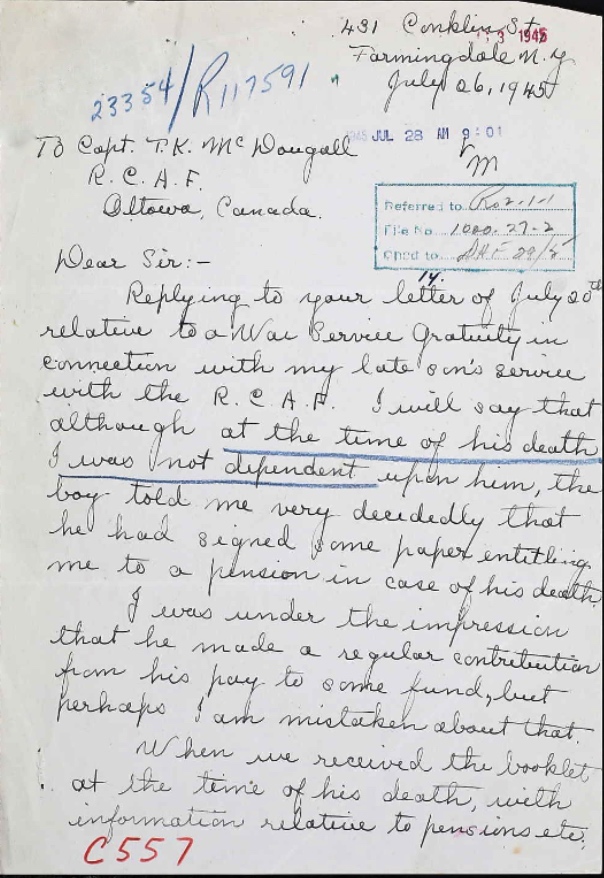 431 Conklin St.,
3 1945
Farmingdale N.Y.
July 26, 1945
23354/R117591
1945 JUL 28 AM 9:01
To Capt. T.K. McDougall
R.C.A.F.
Ottowa, Canada.
M
Referred to
File No. 1000-27-2
Chged to
Dear Sir:-
14.
Replying to your letter of July 20th
relative to a War Service Gratuity in
connection with my late son's service
with the R.C.A.F. I will say that
although at the time of his death
I was not dependent upon him, the
boy told me very decidedly that
he had signed some paper entitling
me to a pension in case of his death.
I was under the impression
that he made a regular contribution
from his pay to some fund, but
perhaps I am mistaken about that.
When we received the booklet
at the time of his death, with
information relative to pensions etc.
C557